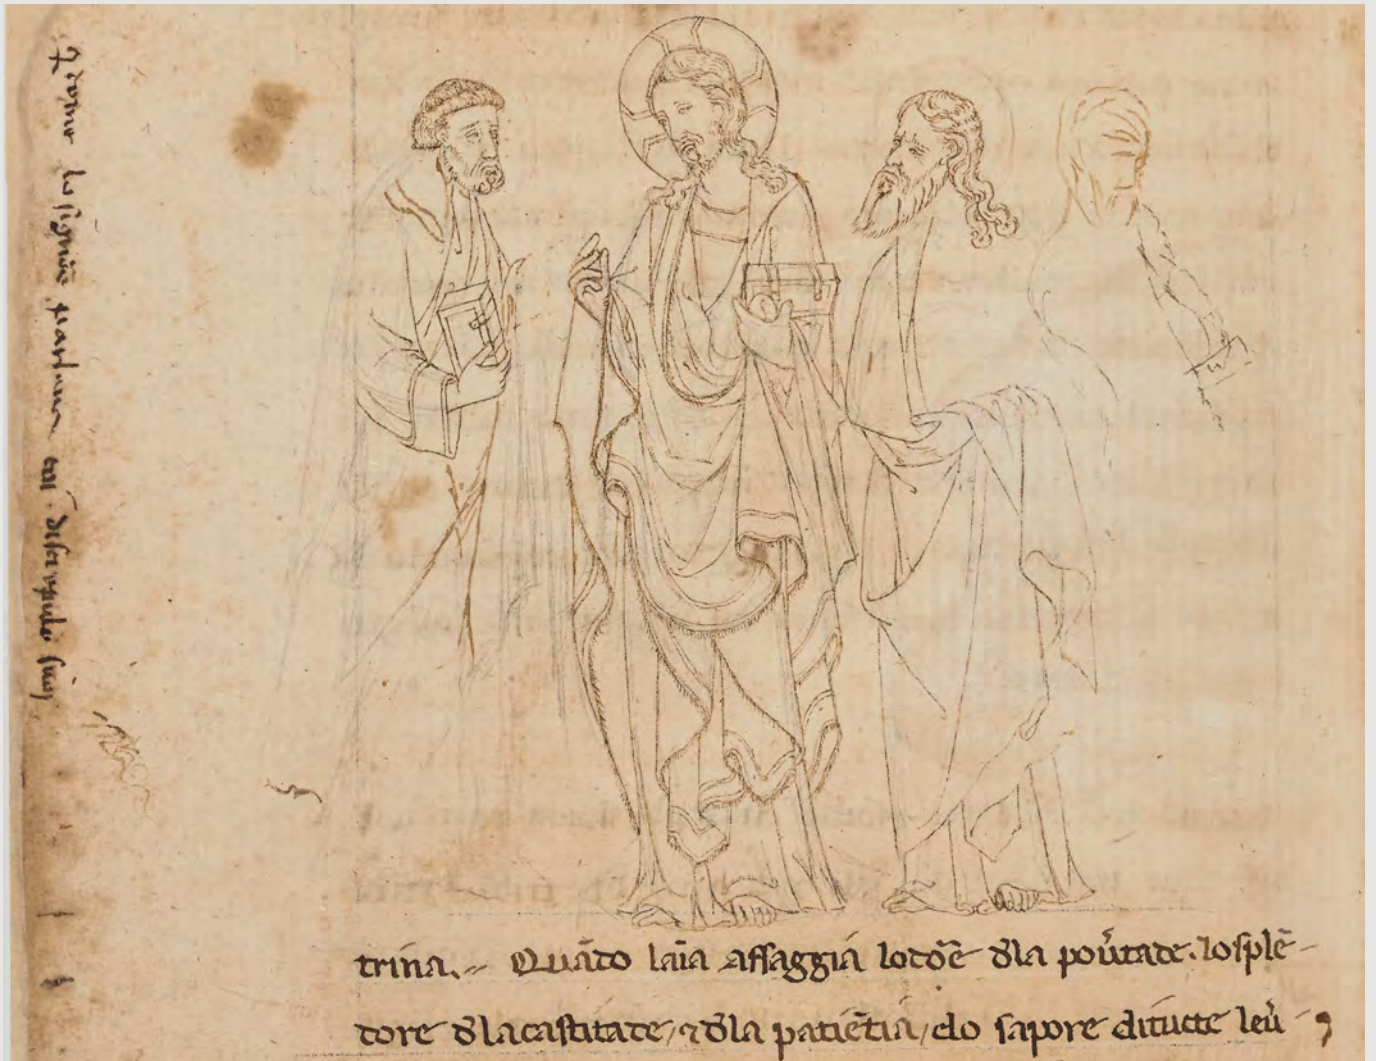 come lo signōe parlaua coī discepuli suoi
trina. Quādo laīa assaggia lodōe dla pov̄tade. losplē-
dore dlacastitate, ⁊ dla patiētia, elo sapore ditucte lev̄-